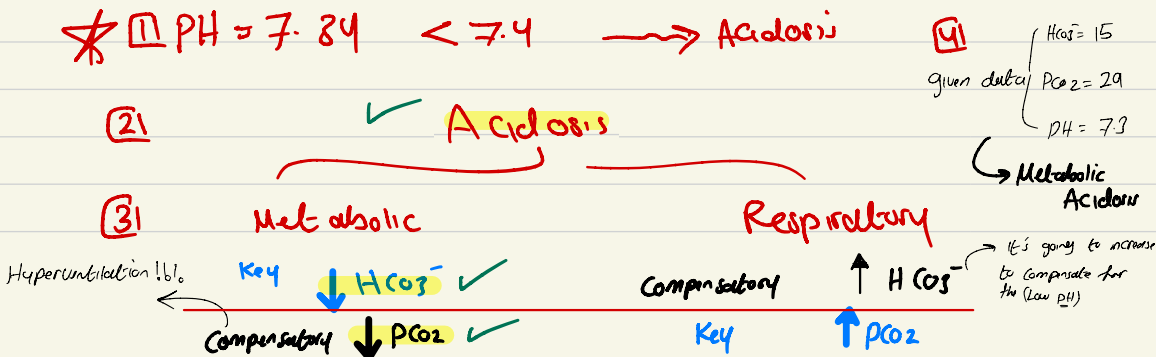 1 PH = 7.34 < 7.4 → Acidosis
4
given data
HCO3⁻ = 15
PCO2 = 29
PH = 7.3
Metabolic Acidosis
2 ✓ Acidosis
3 Metabolic
Respiratory
Hyperventilation !!
Key ↓ HCO3⁻ ✓
Compensatory ↓ PCO2 ✓
Compensatory ↑ HCO3⁻
It's going to increase
to compensate for
the (Low PH)
Key ↑ PCO2